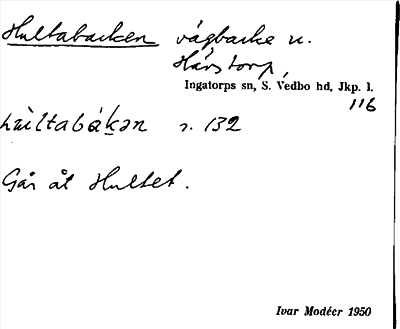 Hultabacken vägbacke n.
Hårstorp,
Ingatorps sn, S. Vedbo hd, Jkp. l.
116
hùltabákən s. 132
Går åt Hultet.
Ivar Modéer 1950